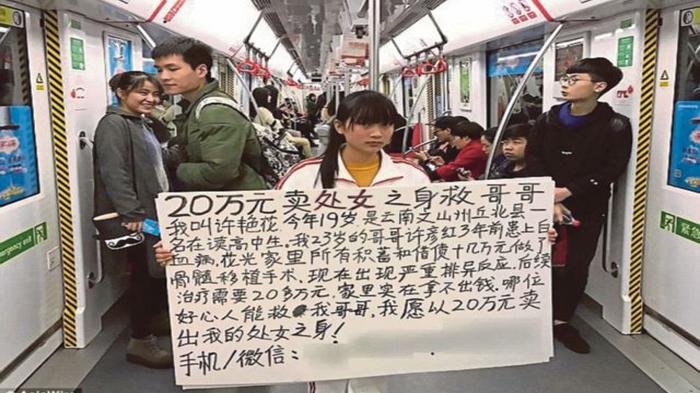 20万元卖处女之身救哥哥
我叫许艳花,今年19岁,是云南文山州丘北县一
名在读高中生。我23岁的哥哥许彦红3年前患上白
血病,花光家里所有积蓄和借债十几万元做了
骨髓移植手术、现在出现严重排异反应,后续
治疗需要20多万元,家里实在拿不出钱。哪位
好心人能救我哥哥,我愿以20万元卖
出我的处女之身!
手机/微信:
Emergency
紧急